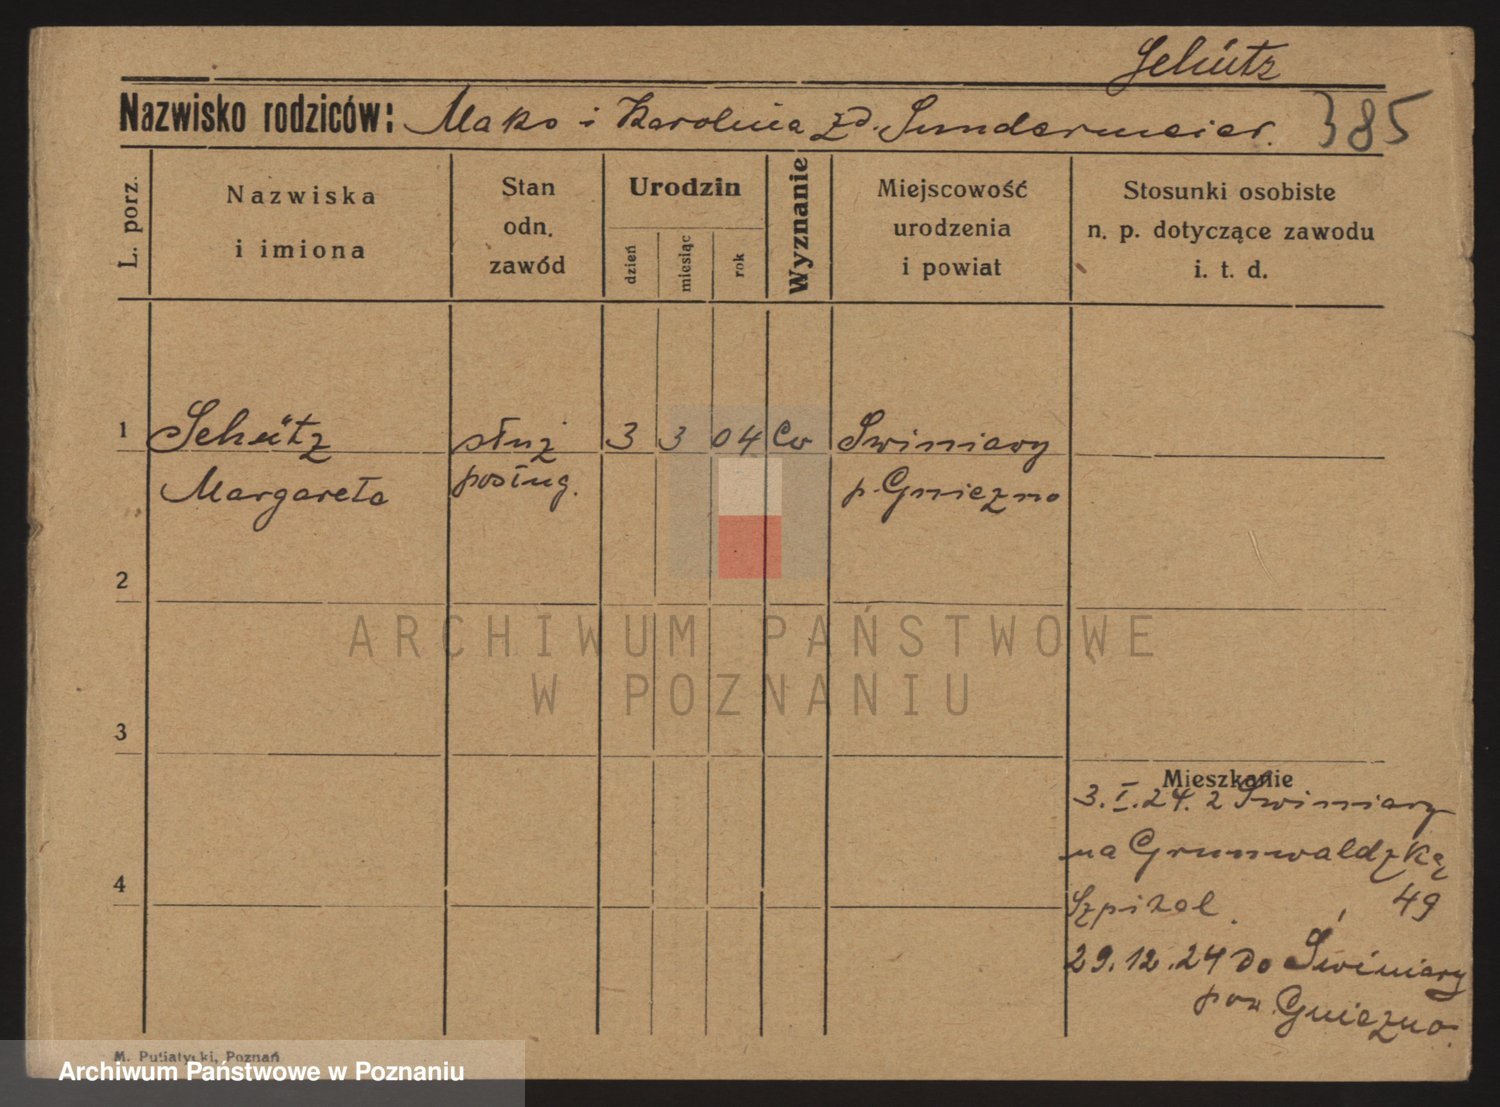 Schütz
Nazwisko rodziców: Mako i Karolina zd. Sundermeier. 385
L. porz.
Nazwiska
i imiona
Stan
odn.
zawód
Urodzin
dzień
miesiąc
rok
Wyznanie
Miejscowość
urodzenia
i powiat
Stosunki osobiste
n. p. dotyczące zawodu
i. t. d.
1 Schütz służ 3 3 04 Ew Swiniary
Margareta posług. p. Gniezno
2
ARCHIWUM PAŃSTWOWE
W POZNANIU
3
Mieszkanie
3. I. 24. z Swiniary
na Grunwaldzką
4
Szpital. 49
29.12.24 do Świniary
pow. Gniezno.
M. Putiatycki, Poznań
Archiwum Państwowe w Poznaniu